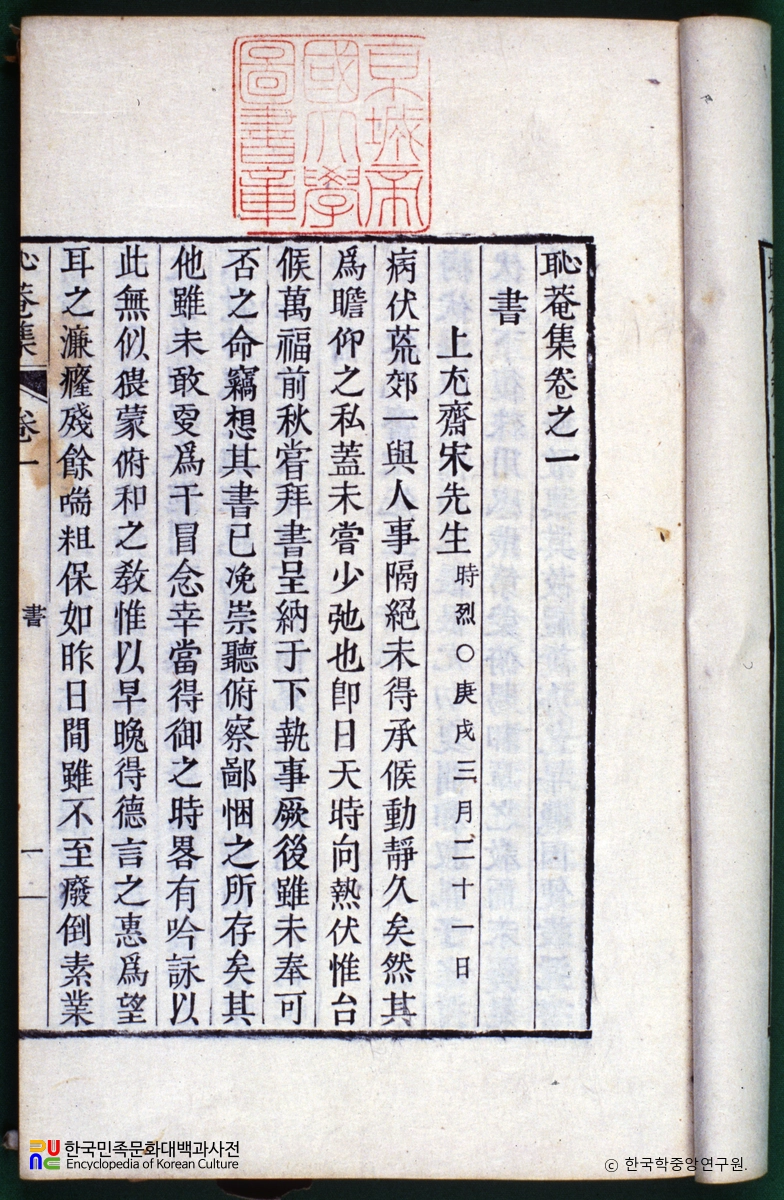 京城帝
國大學
圖書章
恥菴集卷之一
書
上尤齋宋先生 時烈〇庚戌三月二十一日
病伏荒郊一與人事隔絕未得承候動靜久矣然其
爲瞻仰之私蓋未嘗少弛也卽日天時向熱伏惟台
候萬福前秋嘗拜書呈納于下執事厥後雖未奉可
否之命竊想其書已浼崇聽俯察鄙悃之所存矣其
他雖未敢更爲干冒念幸當得御之時畧有吟詠以
此無似猥蒙俯和之敎惟以早晚得德言之惠爲望
耳之濂癃殘餘喘粗保如昨日間雖不至癈倒素業
恥菴集 卷一 書 一
한국민족문화대백과사전
Encyclopedia of Korean Culture
ⓒ 한국학중앙연구원.